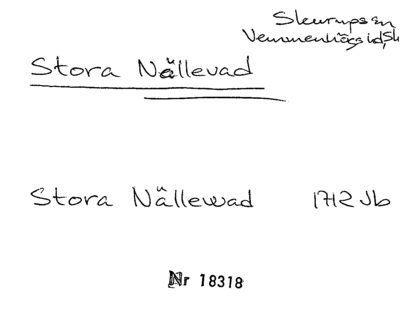 Skurups sn
Vemmenhögs hd, Sk
Stora Nällevad
Stora Nällewad 1712 Jb
Nr 18318